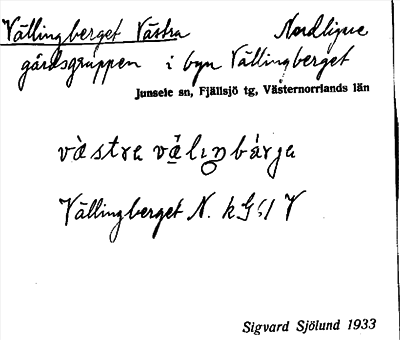 Vällingberget Västra Nordligare
gårdsgruppen i byn Vällingberget
Junsele sn, Fjällsjö tg, Västernorrlands län
västra vä̀liŋbárja
Vällingberget N.
Sigvard Sjölund 1933